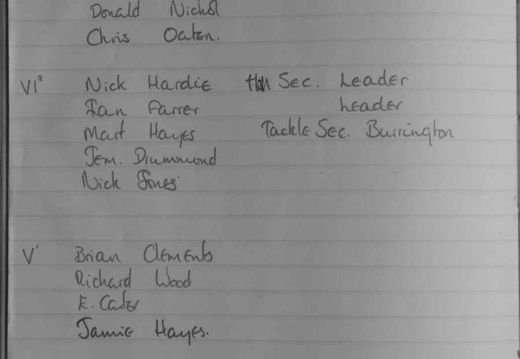 Donald Nichol
Chris Oaten.
VI² Nick Hardie Hon Sec. Leader
Ian Farrer Leader
Mart Hayes Tackle Sec. Burrington
Jem. Drummond
Nick Jones
V' Brian Clements
Richard Wood
E. Cater
Jamie Hayes.